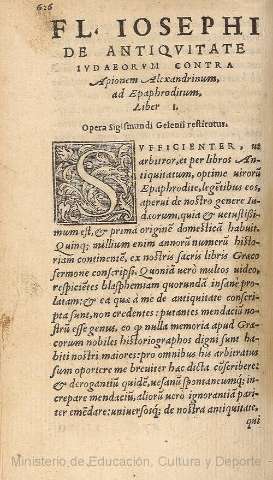 626
FL. IOSEPHI
DE ANTIQVITATE
IVDAEORVM CONTRA
Apionem Alexandrinum,
ad Epaphroditum,
Liber I.
Opera Sigismundi Gelenii restitutus.
SVFFICIENTER, ut
arbitror, et per libros An-
tiquitatum, optime uirorũ
Epaphrodite, legẽtibus eos,
aperui de nostro genere Iu
dæorum, quia & uetustissi-
mum est, & prima origine domesticã habuit.
Quinq; millium enim annorũ numerũ histo-
riam continentẽ, ex nostris sacris libris Græco
sermone conscripsi. Quoniã uerò multos uideo,
respiciẽtes blasphemiam quorundã insanè pro-
latam: & ea quæ à me de antiquitate conscri-
pta sunt, non credentes: putantes mendaciũ no-
strũ esse genus, eo ꝙ nulla memoria apud Græ-
corum nobiles historiographos digni sunt ha-
biti nostri maiores: pro omnibus his arbitratus
sum oportere me breuiter hæc dicta cõscribere:
& derogantiũ quidẽ, uesanũ spontaneumq; in-
crepare mendaciũ, aliorũ uerò ignorantiã pari-
ter emẽdare: uniuersosq; de nostra antiquitate,
qui
Ministerio de Educación, Cultura y Deporte